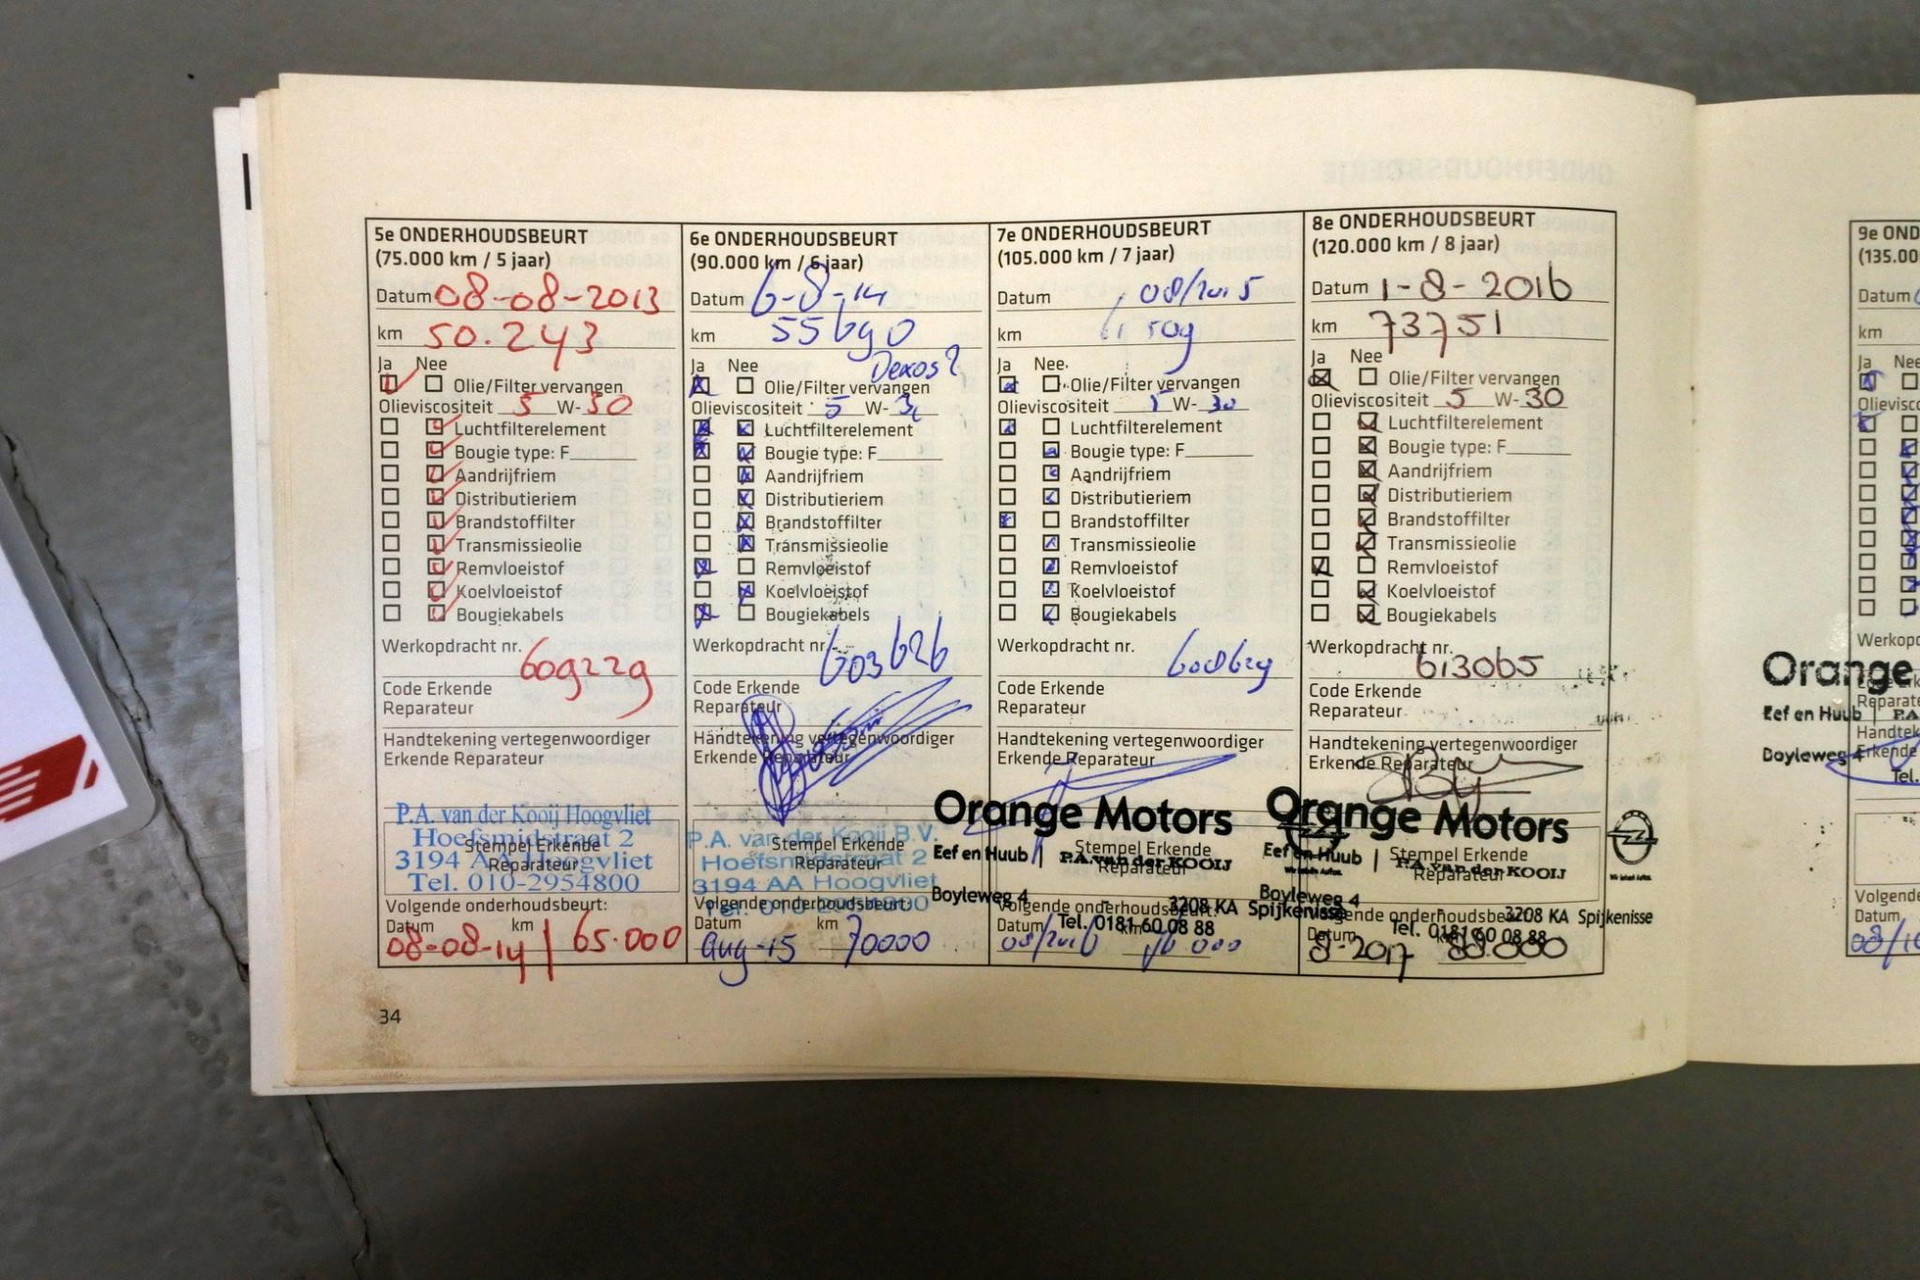 5e ONDERHOUDSBEURT
(75.000 km / 5 jaar)
Datum 08-08-2013
km 50.243
Ja Nee
Olie/Filter vervangen
Olieviscositeit 5 W-30
Luchtfilterelement
Bougie type: F
Aandrijfriem
Distributieriem
Brandstoffilter
Transmissieolie
Remvloeistof
Koelvloeistof
Bougiekabels
Werkopdracht nr. 609229
Code Erkende
Reparateur
Handtekening vertegenwoordiger
Erkende Reparateur
P.A. van der Kooij Hoogvliet
Hoefsmidstraat 2
Stempel Erkende
3194 AA Hoogvliet
Reparateur
Tel. 010-2954800
Volgende onderhoudsbeurt:
Datum km
08-08-14 65.000
6e ONDERHOUDSBEURT
(90.000 km / 6 jaar)
Datum 6-8-14
km 55690
Dexos2
Ja Nee
Olie/Filter vervangen
Olieviscositeit 5 W-30
Luchtfilterelement
Bougie type: F
Aandrijfriem
Distributieriem
Brandstoffilter
Transmissieolie
Remvloeistof
Koelvloeistof
Bougiekabels
Werkopdracht nr. 603626
Code Erkende
Reparateur
Handtekening vertegenwoordiger
Erkende Reparateur
P.A. van der Kooij B.V.
Stempel Erkende
Hoefsmidstraat 2
Reparateur
3194 AA Hoogvliet
Volgende onderhoudsbeurt:
Datum km
Aug-15 70000
7e ONDERHOUDSBEURT
(105.000 km / 7 jaar)
Datum 08/2015
km
Ja Nee
Olie/Filter vervangen
Olieviscositeit 5 W-30
Luchtfilterelement
Bougie type: F
Aandrijfriem
Distributieriem
Brandstoffilter
Transmissieolie
Remvloeistof
Koelvloeistof
Bougiekabels
Werkopdracht nr.
Code Erkende
Reparateur
Handtekening vertegenwoordiger
Erkende Reparateur
Orange Motors
Stempel Erkende
Eef en Huub | P.A. van der KOOIJ
Reparateur
Boyleweg 4 3208 KA Spijkenisse
Volgende onderhoudsbeurt:
Tel. 0181 60 08 88
Datum km
08/2016
8e ONDERHOUDSBEURT
(120.000 km / 8 jaar)
Datum 1-8-2016
km 73751
Ja Nee
Olie/Filter vervangen
Olieviscositeit 5 W-30
Luchtfilterelement
Bougie type: F
Aandrijfriem
Distributieriem
Brandstoffilter
Transmissieolie
Remvloeistof
Koelvloeistof
Bougiekabels
Werkopdracht nr. 613065
Code Erkende
Reparateur
Handtekening vertegenwoordiger
Erkende Reparateur
Orange Motors
Stempel Erkende
Eef en Huub | P.A. van der KOOIJ
Reparateur
Boyleweg 4 3208 KA Spijkenisse
Volgende onderhoudsbeurt:
Tel. 0181 60 08 88
Datum km
8-2017 88.000
34
9e OND
(135.00
Datum
km
Ja Nee
Olievisc
Werkop
Orange
Eef en Huub | P.A.
Handtek
Boyleweg 4
Erkende
Tel.
Volgende
Datum